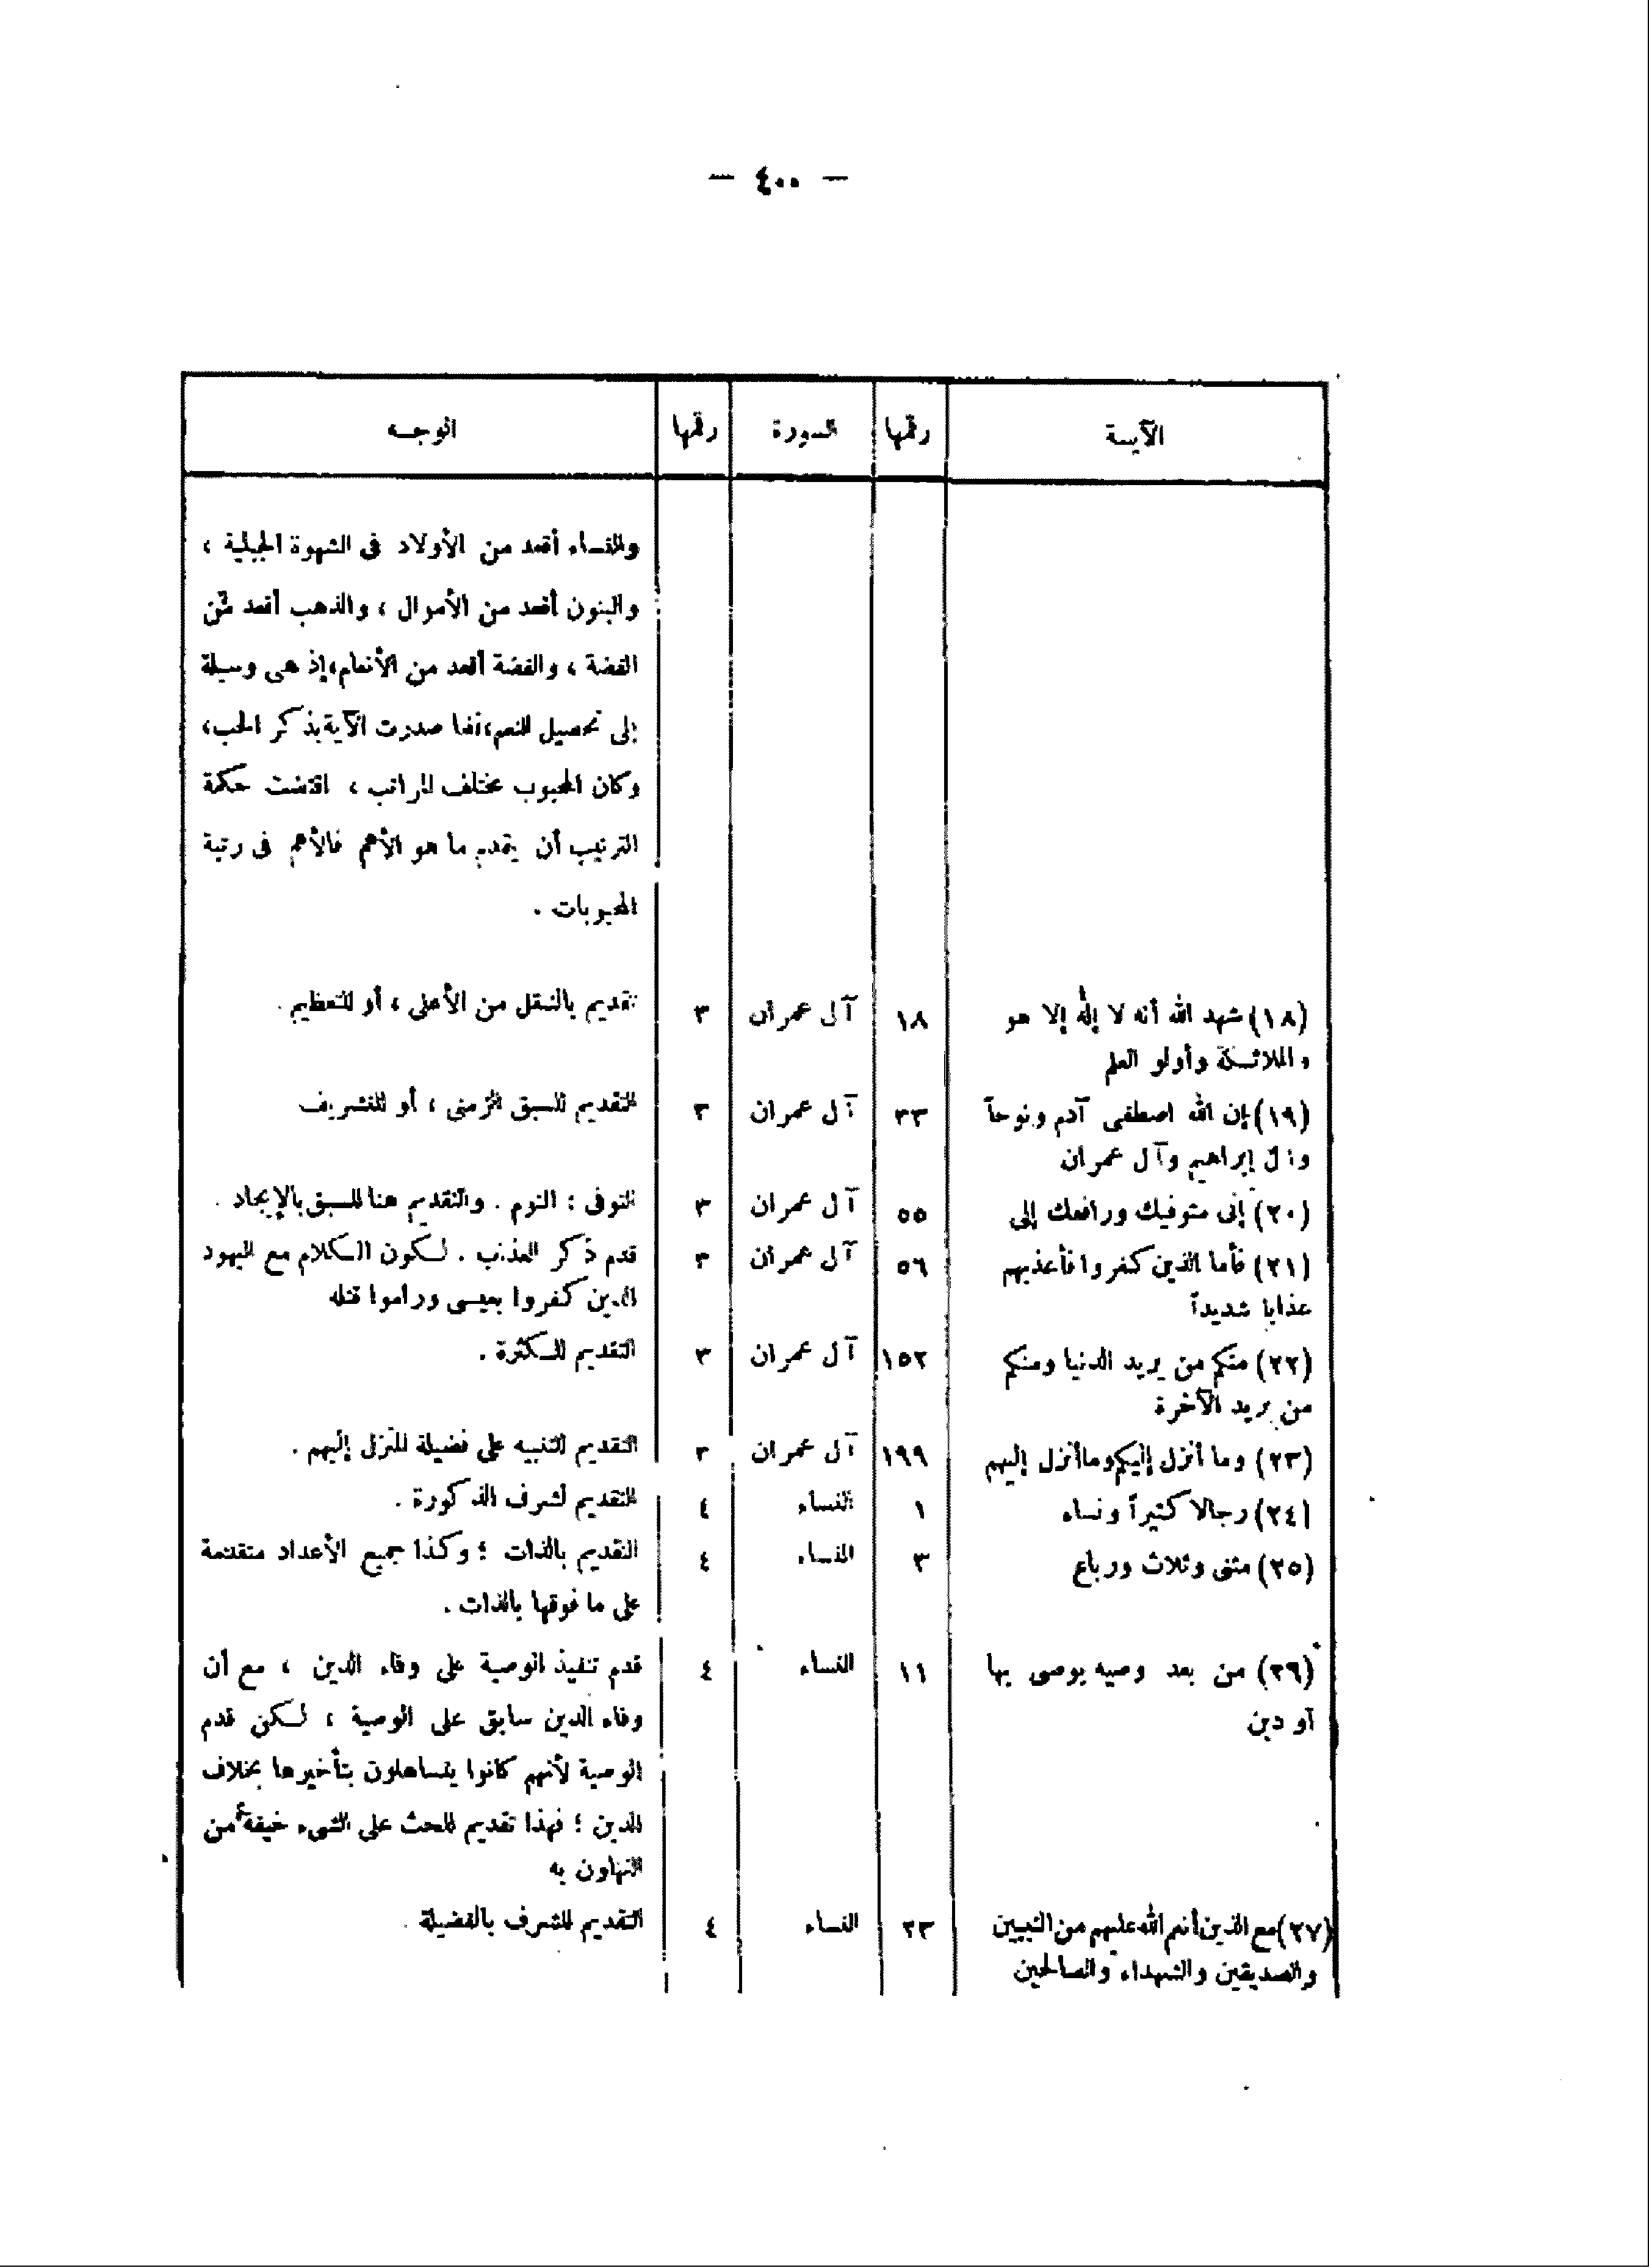 — ٤٠٠ —
الآيـة رقمها السورة رقمها الوجـه
والنساء أقعد من الأولاد فى الشهوة الجبلية ،
والبنون أقعد من الأموال ، والذهب أقعد من
الفضة ، والفضة أقعد من الأنعام،إذ هى وسيلة
إلى تحصيل النعم،فلما صدرت الآية بذكر الحب،
وكان المحبوب مختلف المراتب ، اقتضت حكمة
الترتيب أن يقدم ما هو الأهم فالأهم فى رتبة
المحبوبات .
(١٨) شهد الله أنه لا إله إلا هو ١٨ آل عمران ٣ تقديم بالنقل من الأعلى ، أو للتعظيم .
والملائكة وأولو العلم
(١٩) إن الله اصطفى آدم ونوحاً ٣٣ آل عمران ٣ التقديم للسبق الزمنى ، أو للتشريف
وآل إبراهيم وآل عمران
(٢٠) إنى متوفيك ورافعك إلى ٥٥ آل عمران ٣ التوفى : النوم . والتقديم هنا للسبق بالإيجاد .
(٢١) فأما الذين كفروا فأعذبهم ٥٦ آل عمران ٣ قدم ذكر العذاب . لكون الكلام مع اليهود
عذابا شديداً الذين كفروا بعيسى وراموا قتله
(٢٢) منكم من يريد الدنيا ومنكم ١٥٢ آل عمران ٣ التقديم للكثرة .
من يريد الآخرة
(٢٣) وما أنزل إليكم وما أنزل إليهم ١٩٩ آل عمران ٣ التقديم للتنبيه على فضيلة المنزل إليهم .
(٢٤) رجالا كثيراً ونساء ١ النساء ٤ التقديم لشرف الذكورة .
(٢٥) مثنى وثلاث ورباع ٣ النساء ٤ التقديم بالذات ؛ وكذا جميع الأعداد متقدمة
على ما فوقها بالذات .
(٢٦) من بعد وصيه يوصى بها ١١ النساء ٤ قدم تنفيذ الوصية على وفاء الدين ، مع أن
أو دين وفاء الدين سابق على الوصية ، لكن قدم
الوصية لأنهم كانوا يتساهلون بتأخيرها بخلاف
الدين ؛ فهذا تقديم للحث على الشىء خيفة من
التهاون به
(٢٧) مع الذين أنعم الله عليهم من النبيين ٢٣ النساء ٤ التقديم للشرف بالفضيلة .
والصديقين والشهداء والصالحين